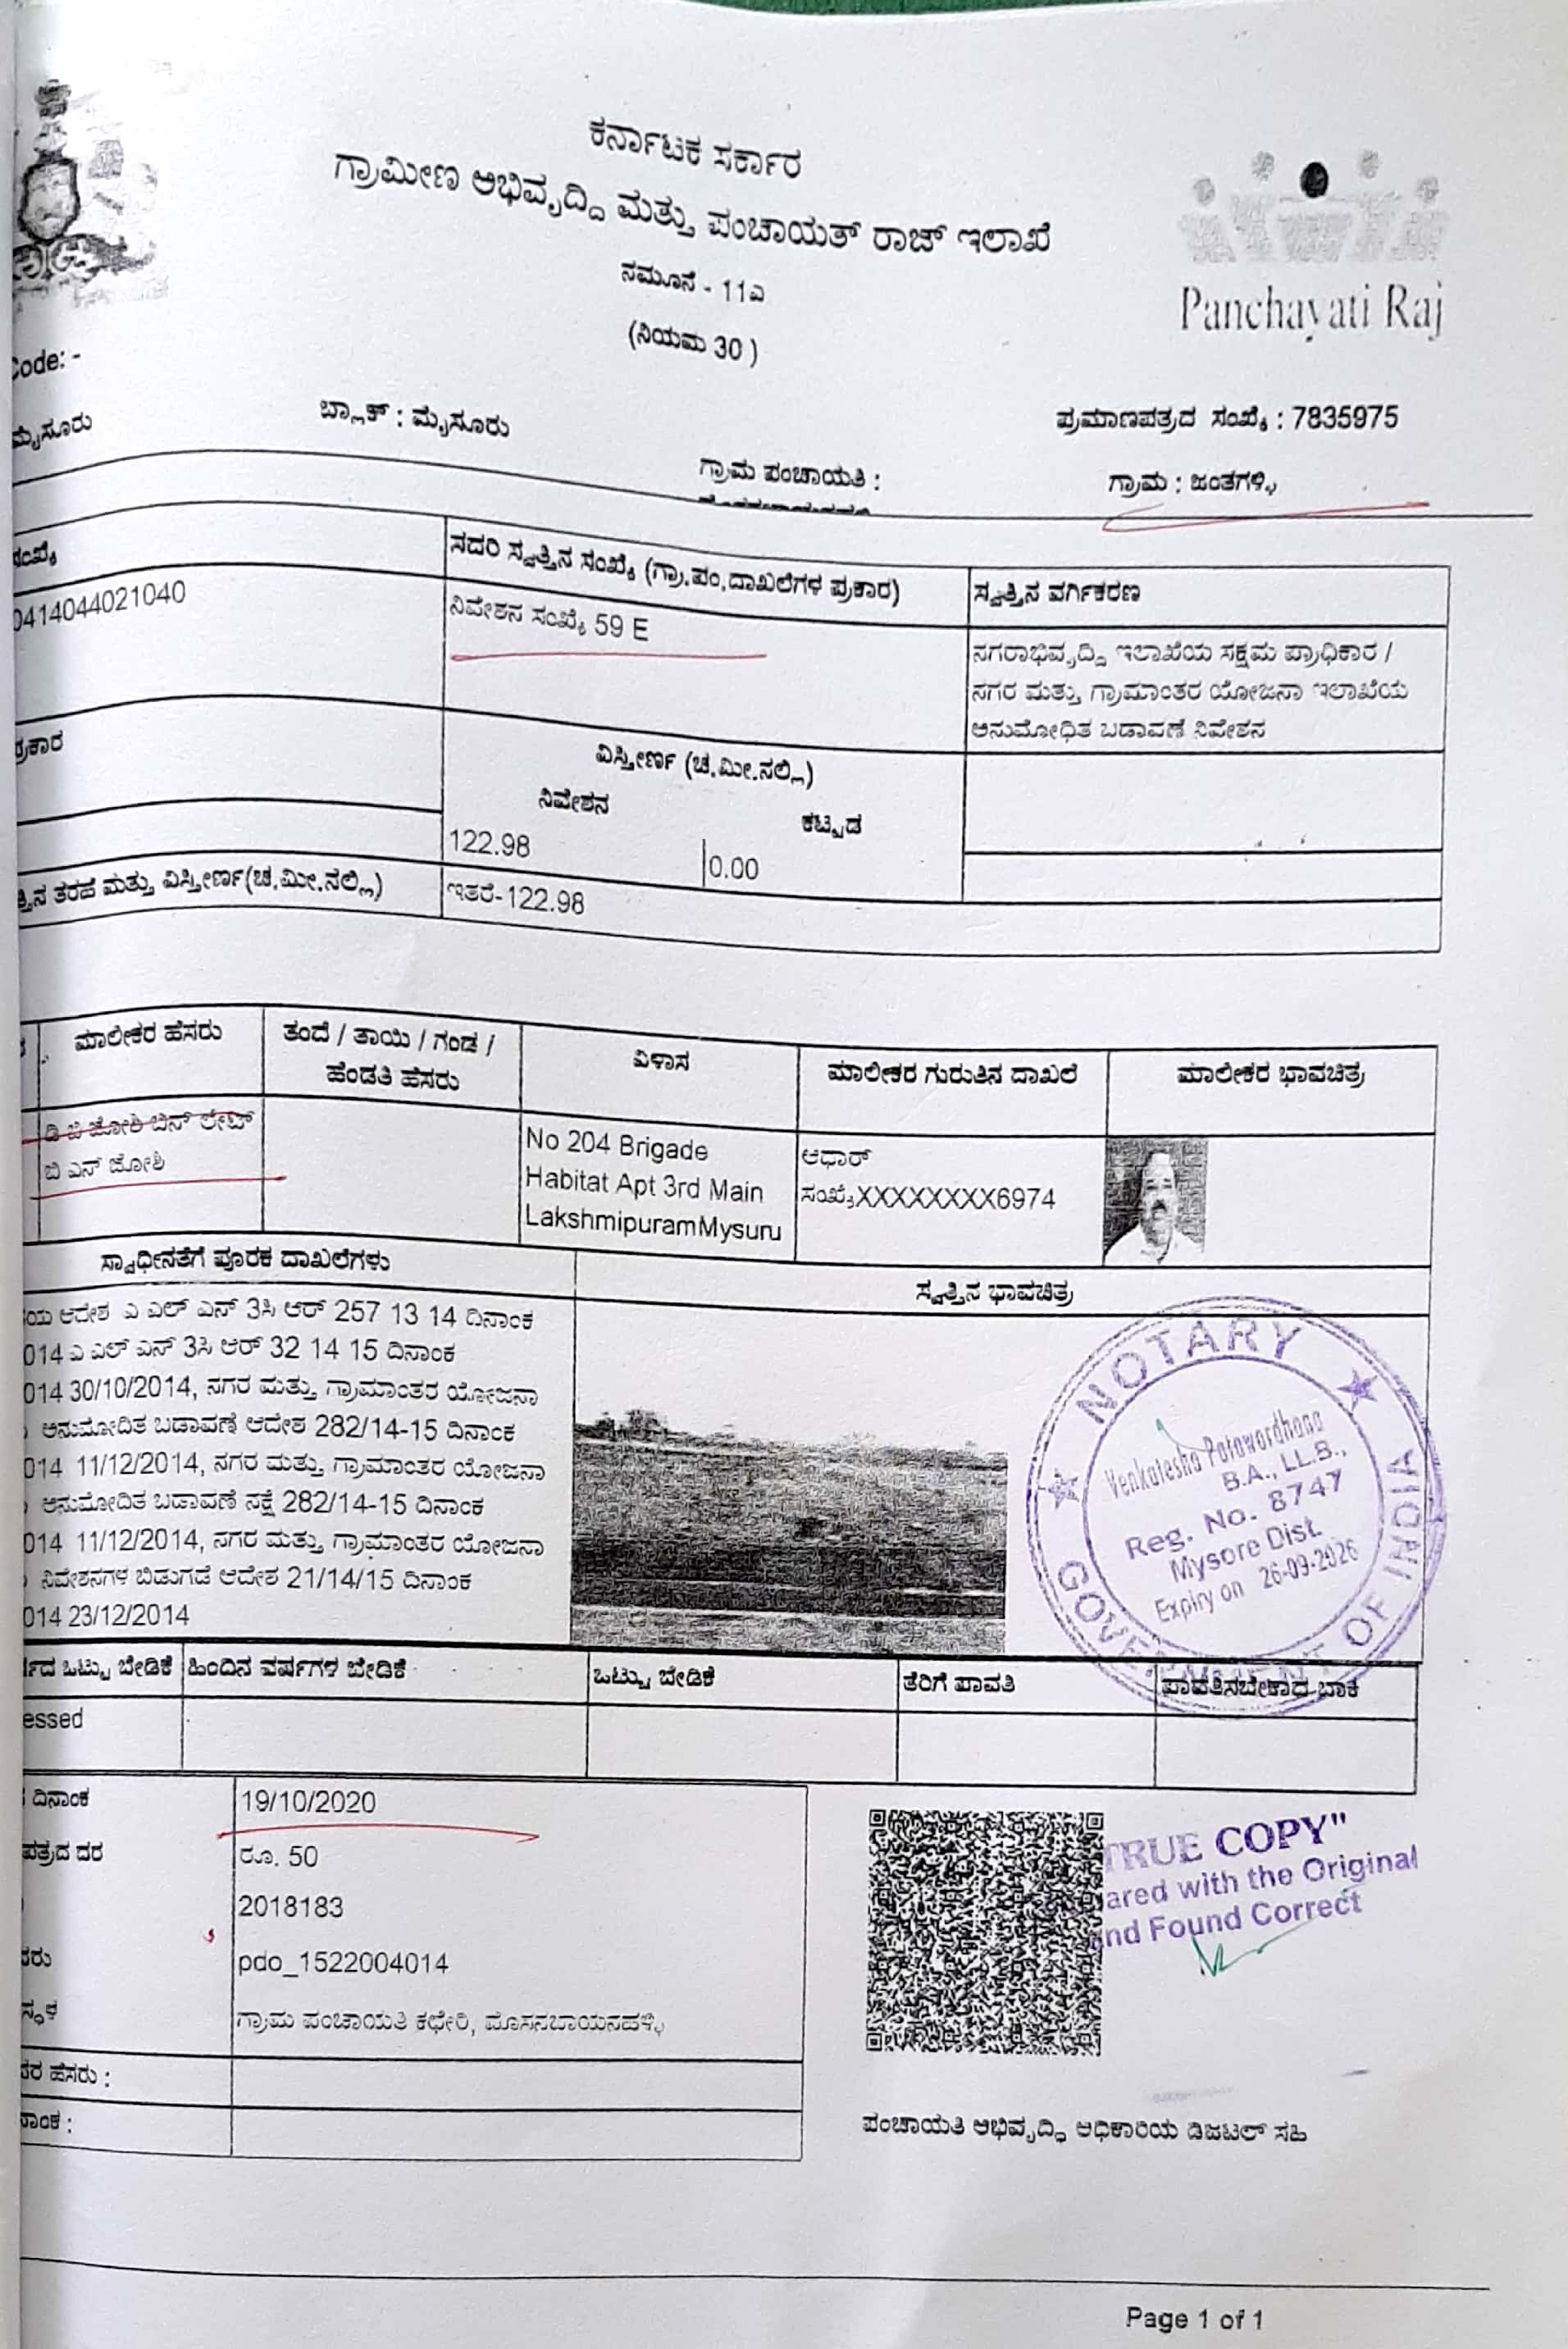 ಕರ್ನಾಟಕ ಸರ್ಕಾರ
ಗ್ರಾಮೀಣ ಅಭಿವೃದ್ದಿ ಮತ್ತು ಪಂಚಾಯತ್ ರಾಜ್ ಇಲಾಖೆ
ನಮೂನೆ - 11ಎ
(ನಿಯಮ 30 )
Panchayati Raj
Code: -
ಪ್ರಮಾಣಪತ್ರದ ಸಂಖ್ಯೆ : 7835975
ಮೈಸೂರು ಬ್ಲಾಕ್ : ಮೈಸೂರು
ಗ್ರಾಮ ಪಂಚಾಯತಿ : ಗ್ರಾಮ : ಜಂತಗಳ್ಳಿ
ಸಂಖ್ಯೆ ಸದರಿ ಸ್ವತ್ತಿನ ಸಂಖ್ಯೆ (ಗ್ರಾ.ಪಂ.ದಾಖಲೆಗಳ ಪ್ರಕಾರ) ಸ್ವತ್ತಿನ ವರ್ಗಿಕರಣ
0414044021040 ನಿವೇಶನ ಸಂಖ್ಯೆ 59 E
ನಗರಾಭಿವೃದ್ದಿ ಇಲಾಖೆಯ ಸಕ್ಷಮ ಪ್ರಾಧಿಕಾರ /
ನಗರ ಮತ್ತು ಗ್ರಾಮಾಂತರ ಯೋಜನಾ ಇಲಾಖೆಯ
ಅನುಮೋಧಿತ ಬಡಾವಣೆ ನಿವೇಶನ
ಪ್ರಕಾರ ವಿಸ್ತೀರ್ಣ (ಚ.ಮೀ.ನಲ್ಲಿ)
ನಿವೇಶನ ಕಟ್ಟಡ
122.98 0.00
ತ್ತಿನ ತರಹ ಮತ್ತು ವಿಸ್ತೀರ್ಣ(ಚ.ಮೀ.ನಲ್ಲಿ) ಇತರೆ-122.98
ಮಾಲೀಕರ ಹೆಸರು ತಂದೆ / ತಾಯಿ / ಗಂಡ / ವಿಳಾಸ ಮಾಲೀಕರ ಗುರುತಿನ ದಾಖಲೆ ಮಾಲೀಕರ ಭಾವಚಿತ್ರ
ಹೆಂಡತಿ ಹೆಸರು
ಡಿ ಬಿ ಜೋಶಿ ಬಿನ್ ಲೇಟ್ No 204 Brigade ಆಧಾರ್
ಬಿ ಎನ್ ಜೋಶಿ Habitat Apt 3rd Main ಸಂಖ್ಯೆXXXXXXXX6974
LakshmipuramMysuru
ಸ್ವಾಧೀನತೆಗೆ ಪೂರಕ ದಾಖಲೆಗಳು ಸ್ವತ್ತಿನ ಭಾವಚಿತ್ರ
ಯ ಆದೇಶ ಎ ಎಲ್ ಎನ್ 3ಸಿ ಆರ್ 257 13 14 ದಿನಾಂಕ
014 ಎ ಎಲ್ ಎನ್ 3ಸಿ ಆರ್ 32 14 15 ದಿನಾಂಕ
014 30/10/2014, ನಗರ ಮತ್ತು ಗ್ರಾಮಾಂತರ ಯೋಜನಾ
ಅನುಮೋದಿತ ಬಡಾವಣೆ ಆದೇಶ 282/14-15 ದಿನಾಂಕ
014 11/12/2014, ನಗರ ಮತ್ತು ಗ್ರಾಮಾಂತರ ಯೋಜನಾ
ಅನುಮೋದಿತ ಬಡಾವಣೆ ನಕ್ಷೆ 282/14-15 ದಿನಾಂಕ
014 11/12/2014, ನಗರ ಮತ್ತು ಗ್ರಾಮಾಂತರ ಯೋಜನಾ
ನಿವೇಶನಗಳ ಬಿಡುಗಡೆ ಆದೇಶ 21/14/15 ದಿನಾಂಕ
014 23/12/2014
NOTARY
Venkatesha Patawardhana
B.A., LL.B.,
Reg. No. 8747
Mysore Dist.
Expiry on 26-09-2026
GOVERNMENT OF INDIA
ರ್ಷದ ಒಟ್ಟು ಬೇಡಿಕೆ ಹಿಂದಿನ ವರ್ಷಗಳ ಬೇಡಿಕೆ ಒಟ್ಟು ಬೇಡಿಕೆ ತೆರಿಗೆ ಪಾವತಿ ಪಾವತಿಸಬೇಕಾದ ಬಾಕಿ
essed
ದಿನಾಂಕ 19/10/2020
ಪತ್ರದ ದರ ರೂ. 50
2018183
ರು pdo_1522004014
ಸ್ಥಳ ಗ್ರಾಮ ಪಂಚಾಯತಿ ಕಛೇರಿ, ಮೊಸನಬಾಯನಹಳ್ಳಿ
ರ ಹೆಸರು :
ನಾಂಕ :
TRUE COPY"
ared with the Original
nd Found Correct
ಪಂಚಾಯತಿ ಅಭಿವೃದ್ಧಿ ಅಧಿಕಾರಿಯ ಡಿಜಿಟಲ್ ಸಹಿ
Page 1 of 1